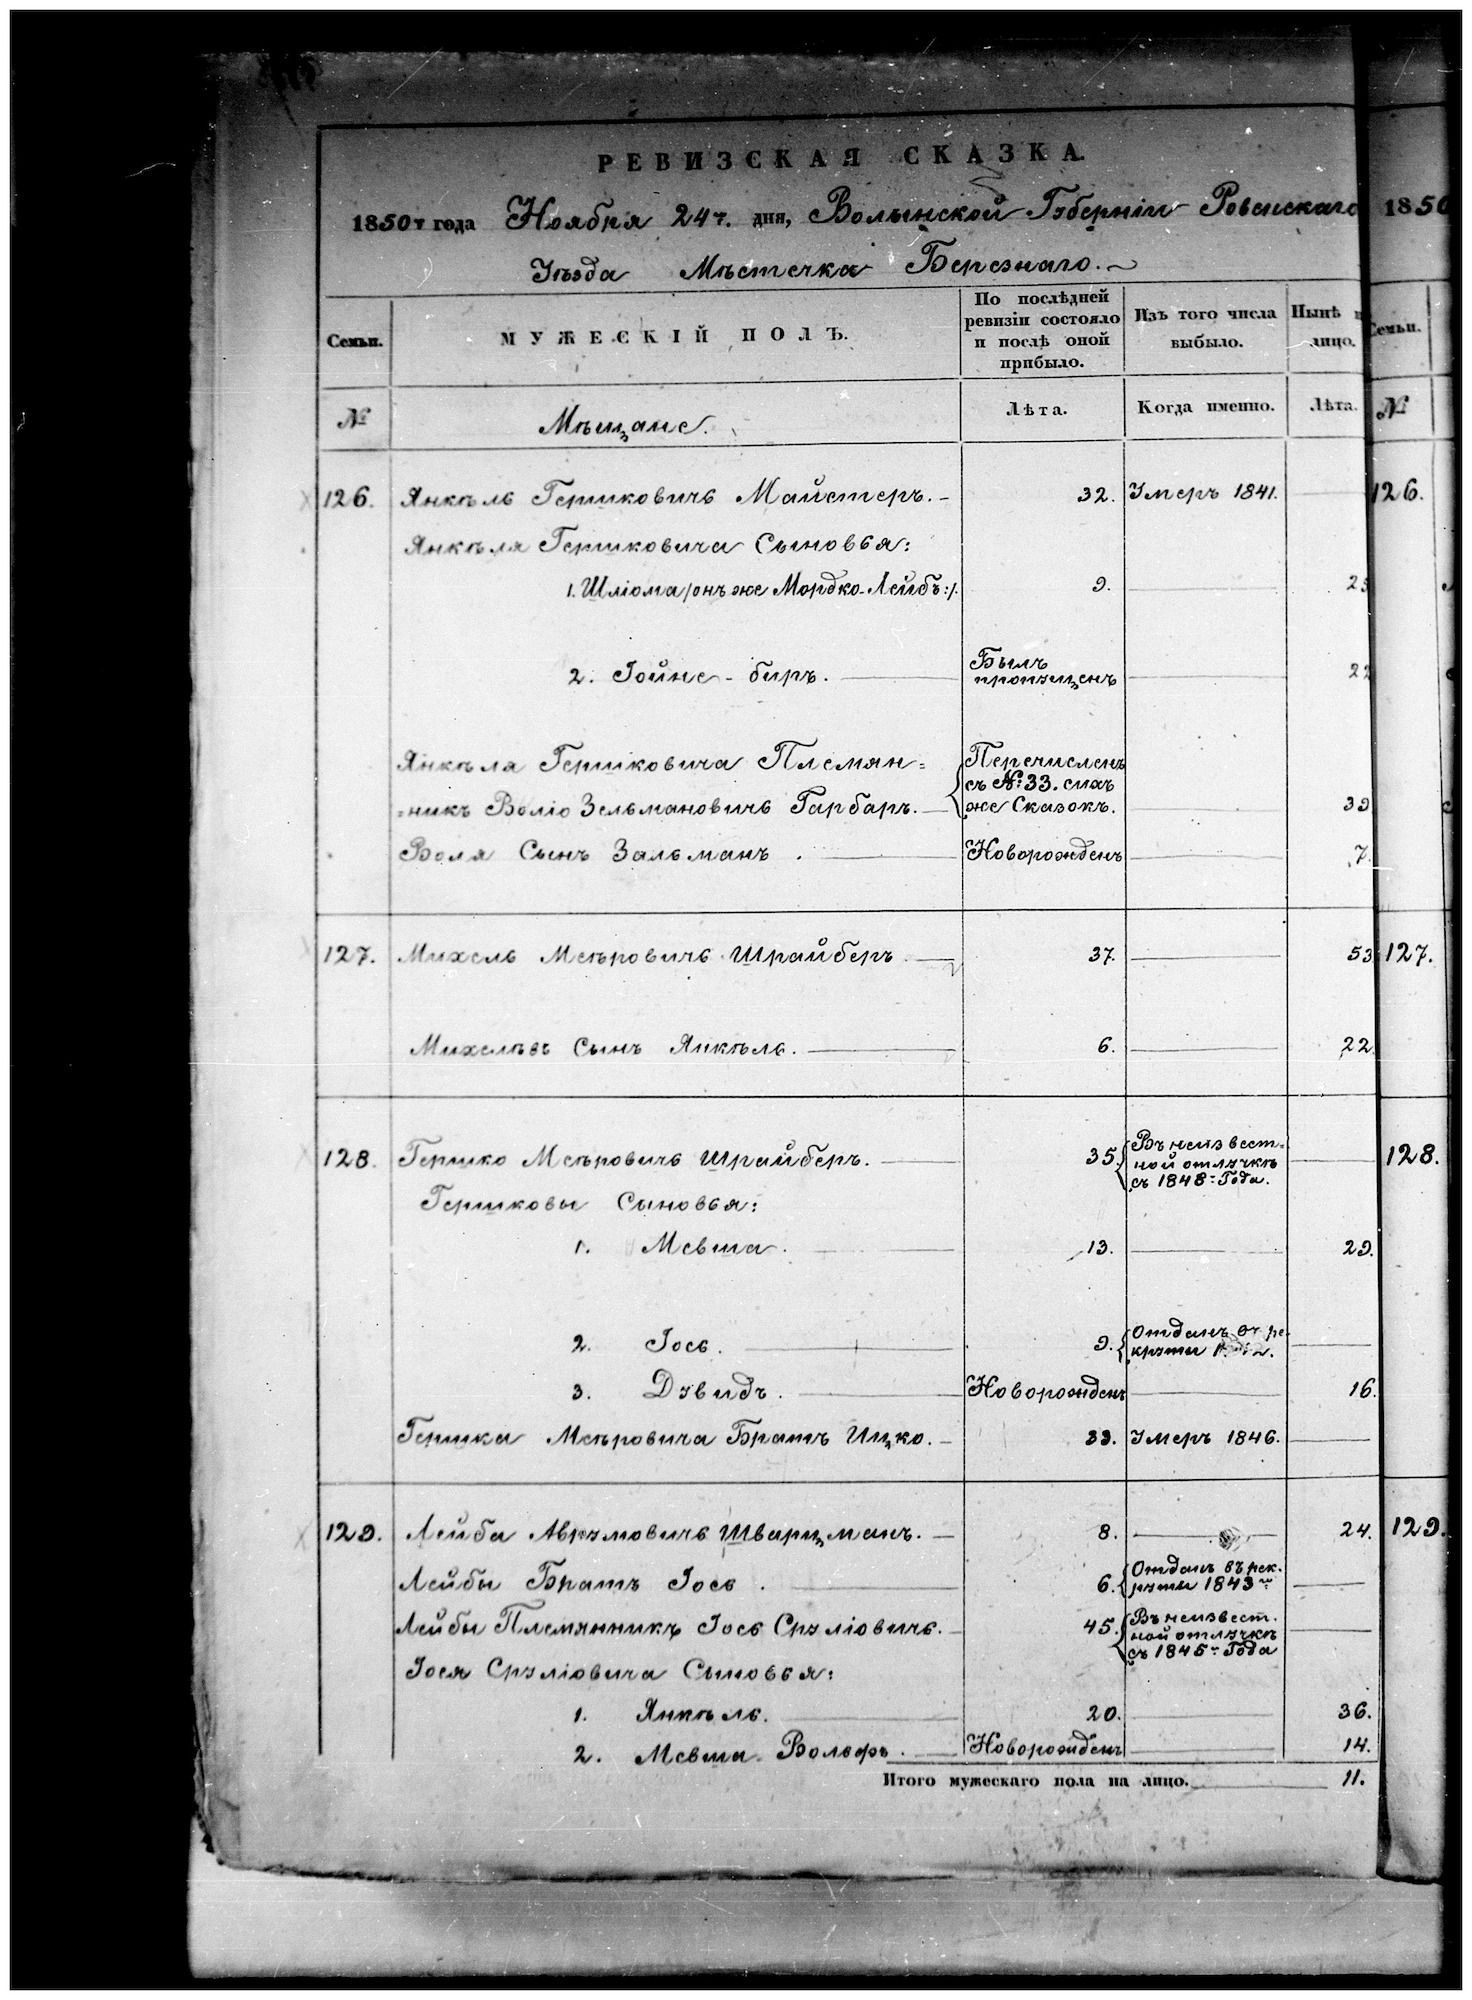 РЕВИЗСКАЯ СКАЗКА.
1850 г года Ноября 24 г. дня, Волынской Губерніи Ровенскаго
Уѣзда Мѣстечка Березнаго.
Семьи.
МУЖЕСКІЙ ПОЛЪ.
По послѣдней ревизіи состояло и послѣ оной прибыло.
Изъ того числа выбыло.
Нынѣ
лицо.
№
Мѣщане.
Лѣта.
Когда именно.
Лѣта.
126. Янкель Гершковичъ Майстеръ. 32. Умеръ 1841.
Янкеля Гершковича Сыновья:
1. Шліома /онъ же Мордко-Лейбъ:/. 9. 25
2. Іойне-биръ. Былъ пропущенъ 22
Янкеля Гершковича Племян=
=никъ Воліо Зельмановичъ Гарбаръ. Перечисленъ съ №: 33. сихъ же Сказокъ. 39
Воля Сынъ Зальманъ. Новорожденъ 7.
127. Михель Меѣровичъ Шрайберъ 37. 53
Михелѣвъ Сынъ Янкѣль. 6. 22.
128. Гершко Меѣровичъ Шрайберъ. 35. Въ неизвест=
ной отлучкѣ
съ 1848 Года.
Гершковы Сыновья:
1. Мевша. 13. 29.
2. Іось. 9. Отданъ въ ре-
круты
3. Дувидъ. Новорожденъ 16.
Гершка Меѣровича Братъ Ицко. 33. Умеръ 1846.
129. Лейба Аврумовичъ Шварцманъ. 8. 24.
Лейбы Братъ Іось. 6. Отданъ въ рек.
руты 1843
Лейбы Племянникъ Іось Сруліовичъ. 45. Въ неизвест.
ной отлучкѣ
съ 1845 Года
Іося Сруліовича Сыновья:
1. Янкѣль. 20. 36.
2. Мевша-Вольфъ. Новорожденъ 14.
Итого мужескаго пола на лицо. 11.
1850
Семьи.
№
126.
127.
128.
129.